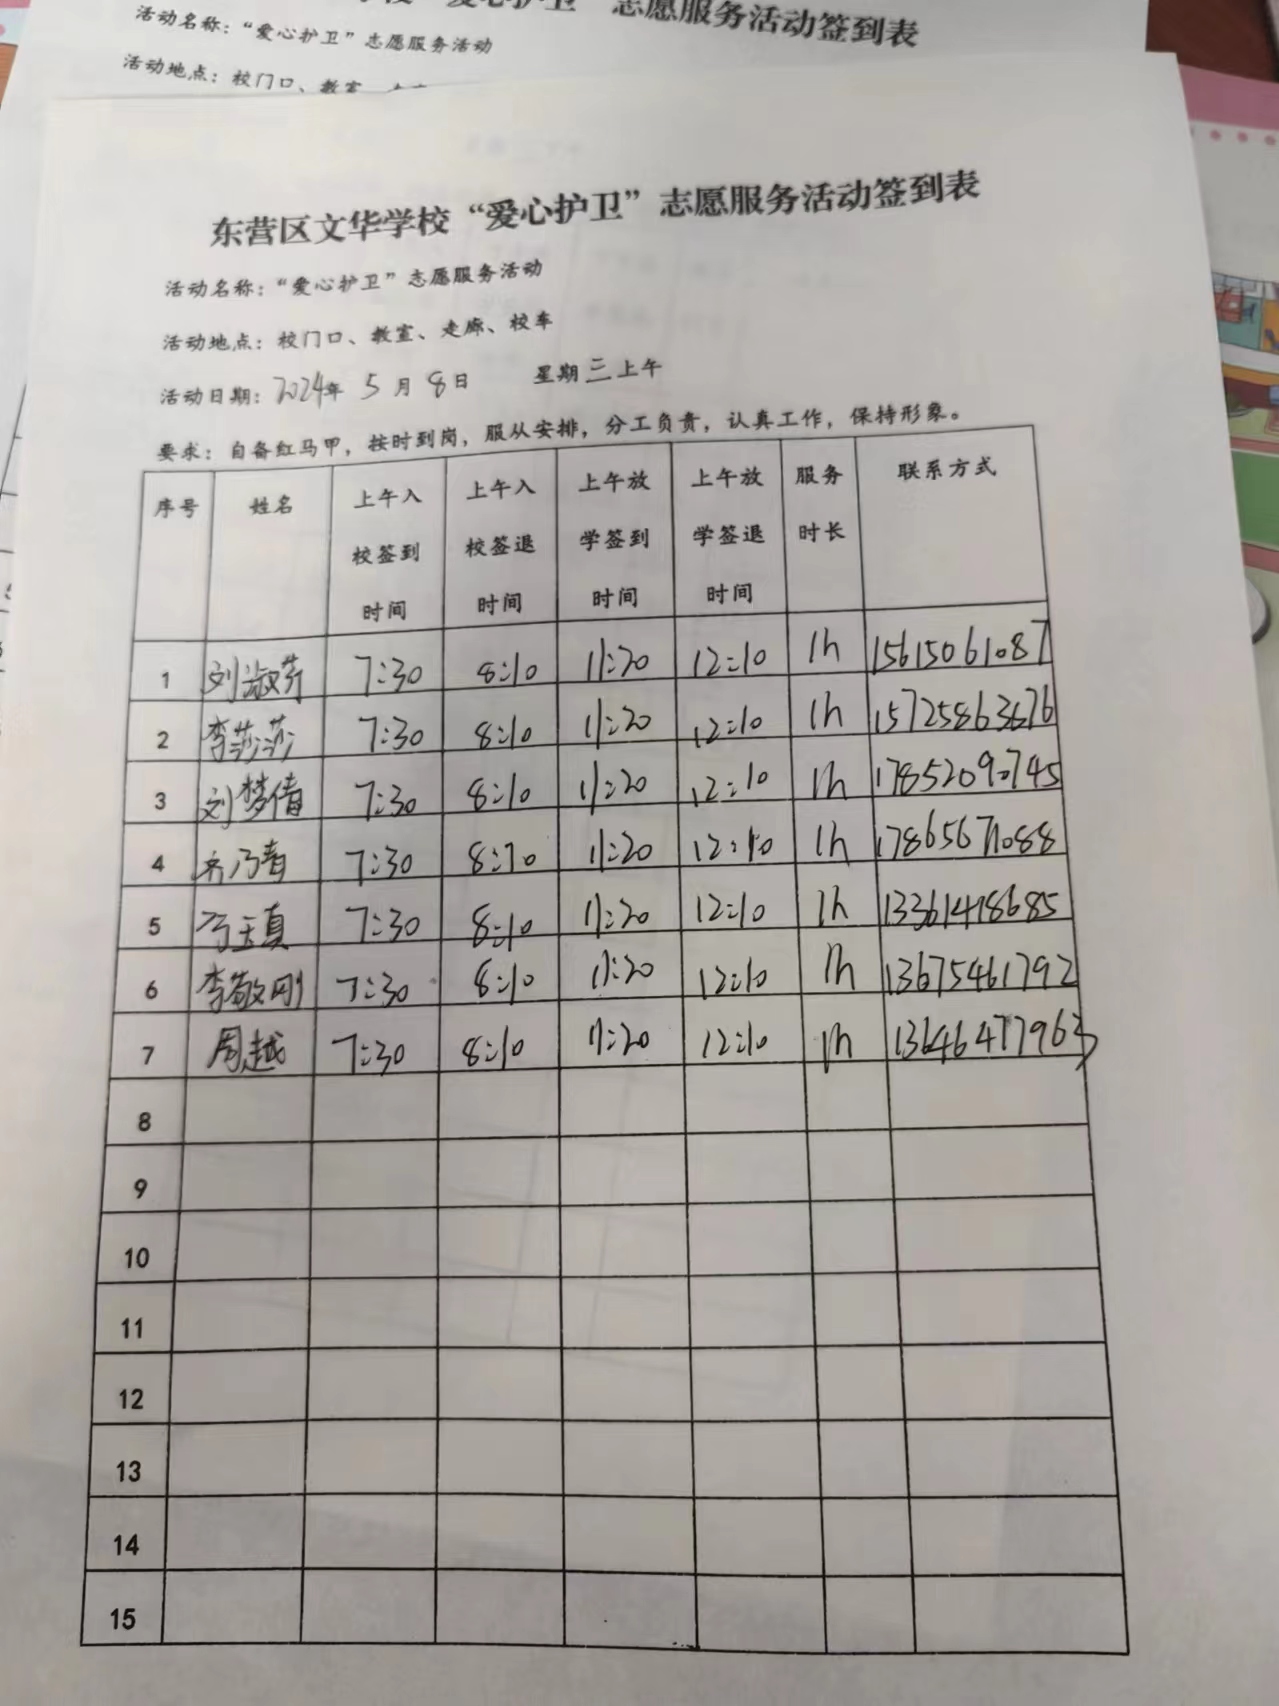 志愿服务活动签到表
活动名称：“爱心护卫”志愿服务活动
活动地点：校门口、教室
东营区文华学校“爱心护卫”志愿服务活动签到表
活动名称：“爱心护卫”志愿服务活动
活动地点：校门口、教室、走廊、校车
活动日期：2024年 5 月 8 日 星期三上午
要求：自备红马甲，按时到岗，服从安排，分工负责，认真工作，保持形象。
序号 姓名 上午入校签到时间 上午入校签退时间 上午放学签到时间 上午放学签退时间 服务时长 联系方式
1 刘淑芬 7:30 8:10 11:20 12:10 1h 15615061087
2 李莎莎 7:30 8:10 11:20 12:10 1h 15725863676
3 刘梦倩 7:30 8:10 11:20 12:10 1h 17852090745
4 7:30 8:10 11:20 12:10 1h 17865671088
5 冯玉真 7:30 8:10 11:20 12:10 1h 13361418685
6 李敬刚 7:30 8:10 11:20 12:10 1h 13675461792
7 周越 7:30 8:10 11:20 12:10 1h 13646477963
8
9
10
11
12
13
14
15